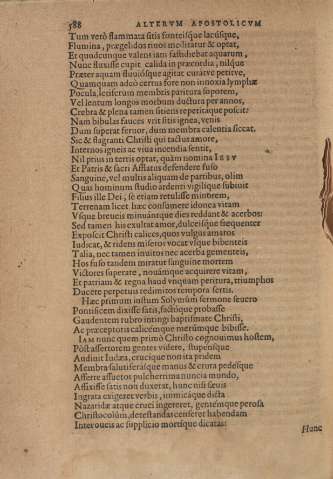 588 ALTERVM APOSTOLICVM
Tum verò flammata sitis fonteisque lacusque,
Flumina, prægelidos riuos meditatur & optat,
Et quodcunque valens iam fastidiebat aquarum,
Nunc fluxisse cupit calida in præcordia, nilque
Præter aquam fluuiosque agitat curatve petitve,
Quamquam adeò certus fore non innoxia lymphæ
Pocula, leniferum membris paritura soporem,
Vel lentum longos morbum ductura per annos,
Crebra & plena tamen sitiens repetitaque poscit:
Nam bibulas fauces vrit sitis ignea, venis
Dum superat feruor, dum membra calentia siccat.
Sic & flagranti Christi qui tactus amore,
Internos igneis ac viua incendia sentit,
Nil prius in terris optat, quàm nomina IESV
Et Patris & sacri Afflatus defendere fuso
Sanguine, vel multis aliquam de partibus, olim
Quas hominum studio ardenti vigilique subiuit
Filius ille Dei, se etiam retulisse minitrem,
Terrenam licet hæc consumere idonea vitam
Vsque breueis minuántque dies reddant & acerbos:
Sed tamen his exultat amor, dulceisque frequenter
Exposcit Christi calices, quos vulgus amaros
Iudicat, & ridens miseros vocat vsque bibenteis
Talia, nec tamen inuitos nec acerba gementeis,
Hos fuso tandem miratur sanguine mortem
Victores superare, nouámque acquirere vitam,
Et patriam & regna haud vnquam peritura, triumphos
Ducere perpetuos redimitos tempora sertis.
Hæc primum iustum Solymûm sermone seuero
Pontificem dixisse satis, factisque probasse
Gaudentem rubro intingi baptismate Christi,
Ac præceptoris calicémque merúmque bibisse.
IAM nunc quem primò Christo cognouimus hostem,
Pòst assertorem gentes videre, stupensque
Audiuit Iudæa, crucique non ita pridem
Membra salutiferásque manus & crura pedesque
Afferre assuetos pulcherrima nuncia mundo,
Affixisse satis non duxerat, hunc nisi seuis
Ingrata exigeret verbis, inimicáque dicta
Nazaridæ atque cruci ingereret, gentémque perosa
Christocolûm, detestandas censeret habendam
Inter oueis ac supplicio mortisque dicatas:
Hunc